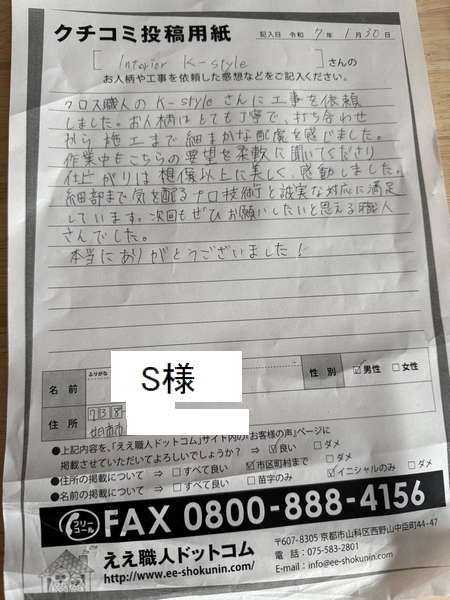 クチコミ投稿用紙
記入日 令和 7 年 1 月 30 日
[ Interior K-style ] さんの
お人柄や工事を依頼した感想などをご記入ください。
クロス職人のK-styleさんに工事を依頼
しました。お人柄はとても丁寧で、打ち合わせ
から施工まで細やかな配慮を感じました。
作業中もこちらの要望を柔軟に聞いてくださり
仕上がりは想像以上に美しく、感動しました。
細部まで気を配るプロ技術と誠実な対応に満足
しています。次回もぜひお願いしたいと思える職人
さんでした。
本当にありがとうございました!
ふりがな
名前 S様 性別 ☑男性 □女性
住所 738-
廿日市市
●上記内容を、「ええ職人ドットコム」サイト内の「お客様の声」ページに
掲載させていただいてよろしいでしょうか? ⇒ ☑良い □ダメ
●住所の掲載について ⇒ □すべて良い ☑市区町村まで □ダメ
●名前の掲載について ⇒ □すべて良い □苗字のみ ☑イニシャルのみ □ダメ
フリーコール FAX 0800-888-4156
ええ職人ドットコム
http://www.ee-shokunin.com/
〒607-8305 京都市山科区西野山中臣町44-47
電話:075-583-2801
E-mail:info@ee-shokunin.com